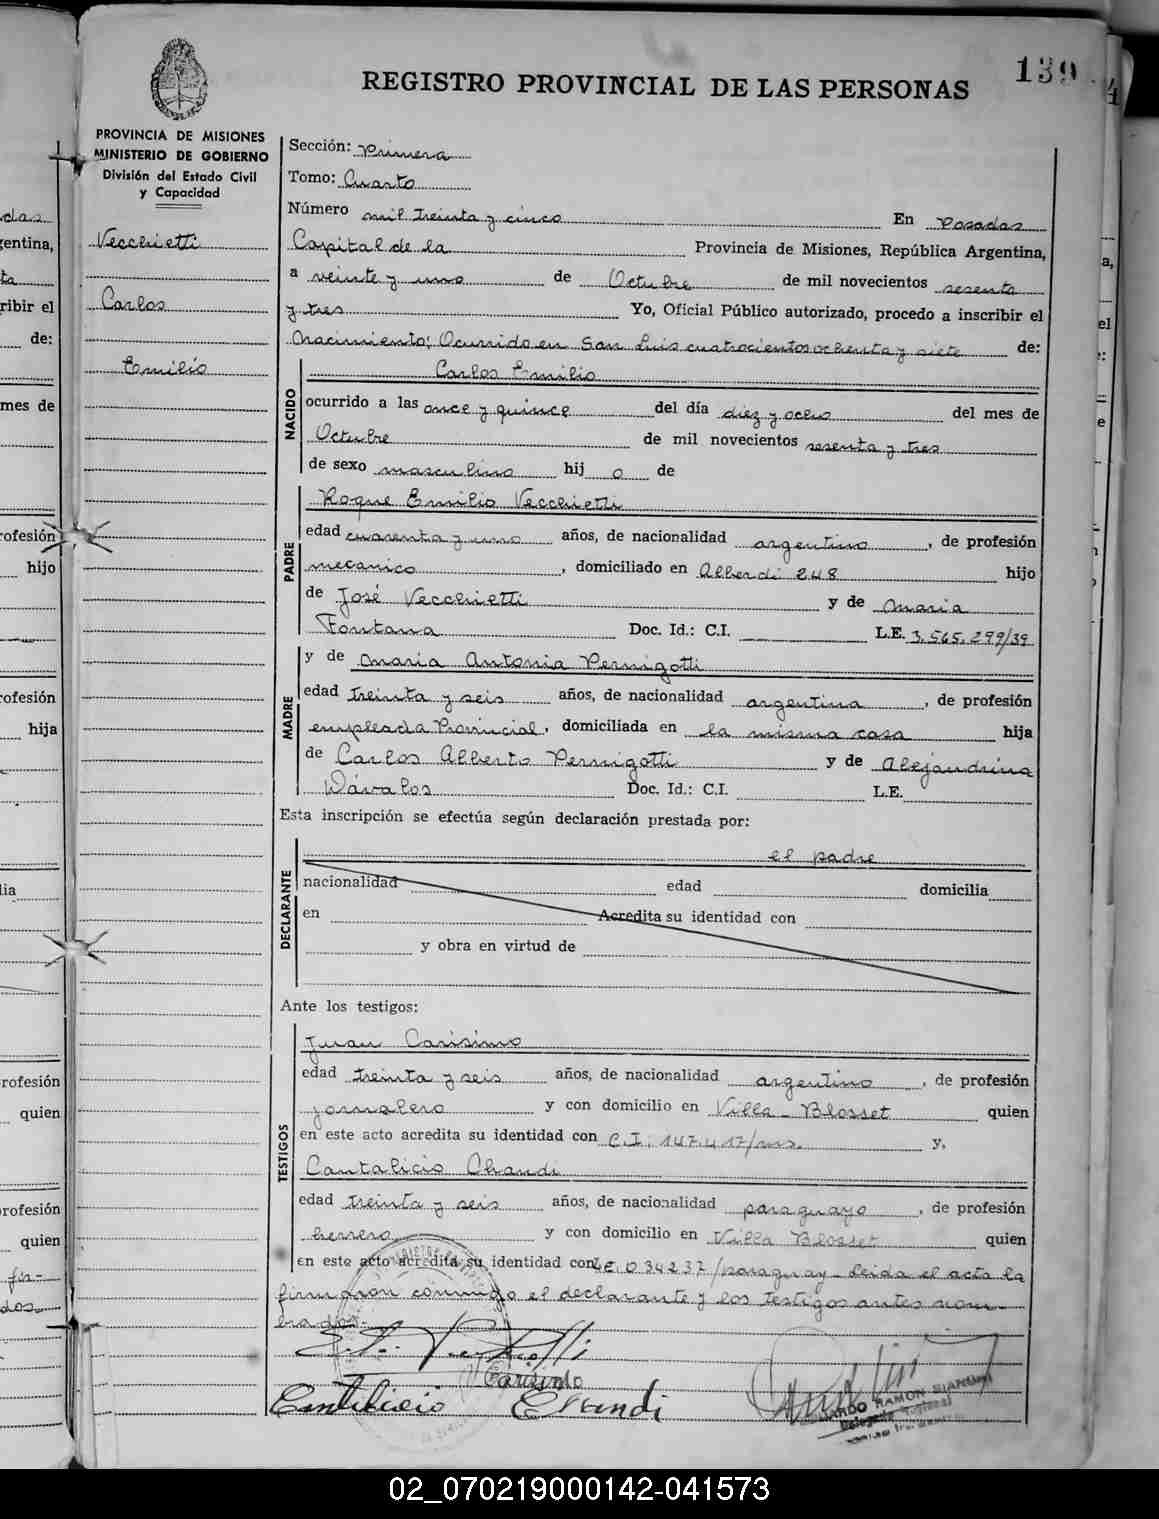 REGISTRO PROVINCIAL DE LAS PERSONAS
139
PROVINCIA DE MISIONES
MINISTERIO DE GOBIERNO
División del Estado Civil
y Capacidad
Vecchietti
Carlos
Emilio
Sección: Primera
Tomo: Cuarto
Número mil treinta y cinco En Posadas
Capital de la Provincia de Misiones, República Argentina,
a veinte y uno de Octubre de mil novecientos sesenta
y tres Yo, Oficial Público autorizado, procedo a inscribir el
Nacimiento; Ocurrido en San Luis cuatrocientos ochenta y siete de:
NACIDO
Carlos Emilio
ocurrido a las once y quince del día diez y ocho del mes de
Octubre de mil novecientos sesenta y tres
de sexo masculino hij o de
PADRE
Roque Emilio Vecchietti
edad cuarenta y uno años, de nacionalidad argentino, de profesión
mecanico, domiciliado en Alberdi 248 hijo
de José Vecchietti y de Maria
Fontana Doc. Id.: C.I. L.E. 3.565.299/39
MADRE
y de Maria Antonia Pernigotti
edad treinta y seis años, de nacionalidad argentina, de profesión
empleada Provincial, domiciliada en la misma casa hija
de Carlos Alberto Pernigotti y de Alejandrina
Dávalos Doc. Id.: C.I. L.E.
Esta inscripción se efectúa según declaración prestada por:
DECLARANTE
el padre
nacionalidad edad domicilia
en Acredita su identidad con
y obra en virtud de
Ante los testigos:
TESTIGOS
Juan Carisimo
edad treinta y seis años, de nacionalidad argentino, de profesión
jornalero y con domicilio en Villa - Blosset quien
en este acto acredita su identidad con C.I. 147.417/ms. y,
Cantalicio Chandi
edad treinta y seis años, de nacionalidad paraguayo, de profesión
herrero y con domicilio en Villa Blosset quien
en este acto acredita su identidad con C.E. 034237/paraguay - Leida el acta la
firmaron conmigo el declarante y los testigos antes nom-
brados.-
Carisimo
RAMON
Delegado
das
gentina,
ta
ribir el
de:
mes de
rofesión
hijo
rofesión
hija
lia
rofesión
quien
rofesión
quien
02_070219000142-041573